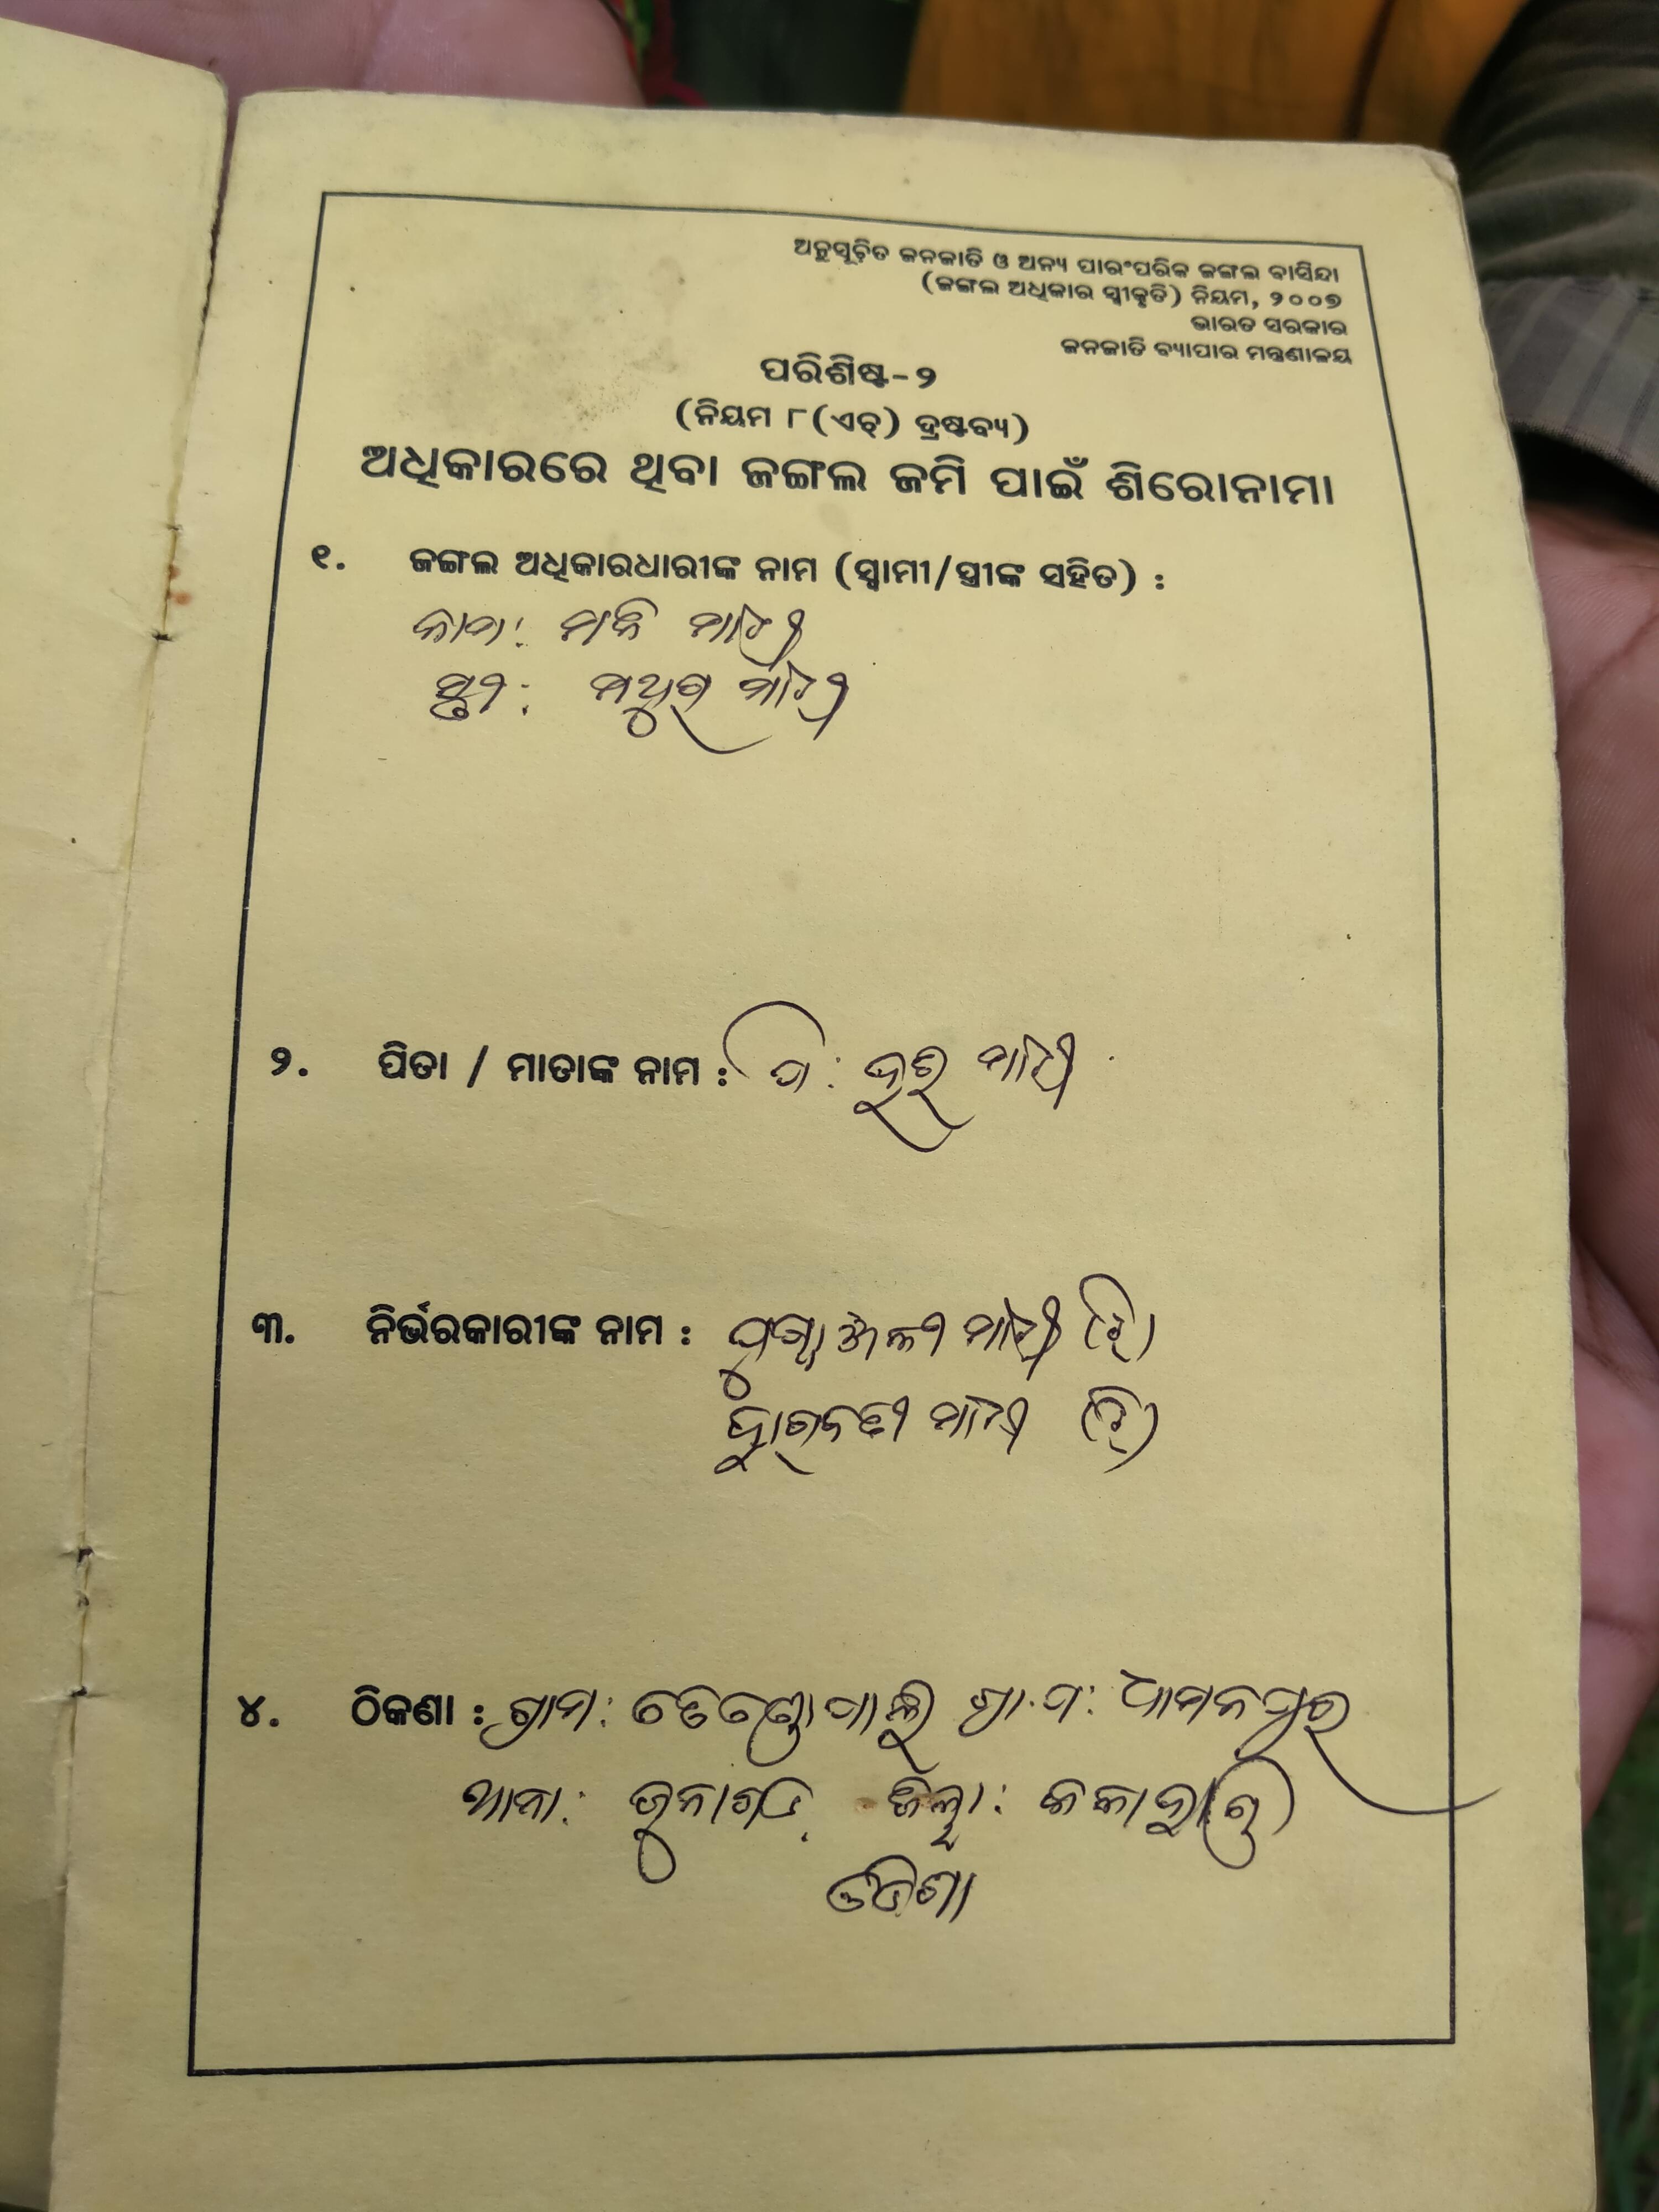 ଅନୁସୂଚିତ ଜନଜାତି ଓ ଅନ୍ୟ ପାରଂପରିକ ଜଙ୍ଗଲ ବାସିନ୍ଦା
(ଜଙ୍ଗଲ ଅଧିକାର ସ୍ୱୀକୃତି) ନିୟମ, ୨୦୦୭
ଭାରତ ସରକାର
ଜନଜାତି ବ୍ୟାପାର ମନ୍ତ୍ରଣାଳୟ
ପରିଶିଷ୍ଟ-୨
(ନିୟମ ୮(ଏଚ୍) ଦ୍ରଷ୍ଟବ୍ୟ)
ଅଧିକାରରେ ଥିବା ଜଙ୍ଗଲ ଜମି ପାଇଁ ଶିରୋନାମା
୧. ଜଙ୍ଗଲ ଅଧିକାରଧାରୀଙ୍କ ନାମ (ସ୍ୱାମୀ/ସ୍ତ୍ରୀଙ୍କ ସହିତ) :
ମାଝି
ମଥୁର ମାଝି
୨. ପିତା / ମାତାଙ୍କ ନାମ : ପି: ମାଝି
୩. ନିର୍ଭରକାରୀଙ୍କ ନାମ : ମାଝି (ଝି)
ମାଝି (ଝି)
୪. ଠିକଣା : ଗ୍ରାମ: ଗ୍ରା.ପ:
ଥାନା: ଜୁନାଗଡ଼ ଜିଲ୍ଲା: କଳାହାଣ୍ଡି
ଓଡିଶା